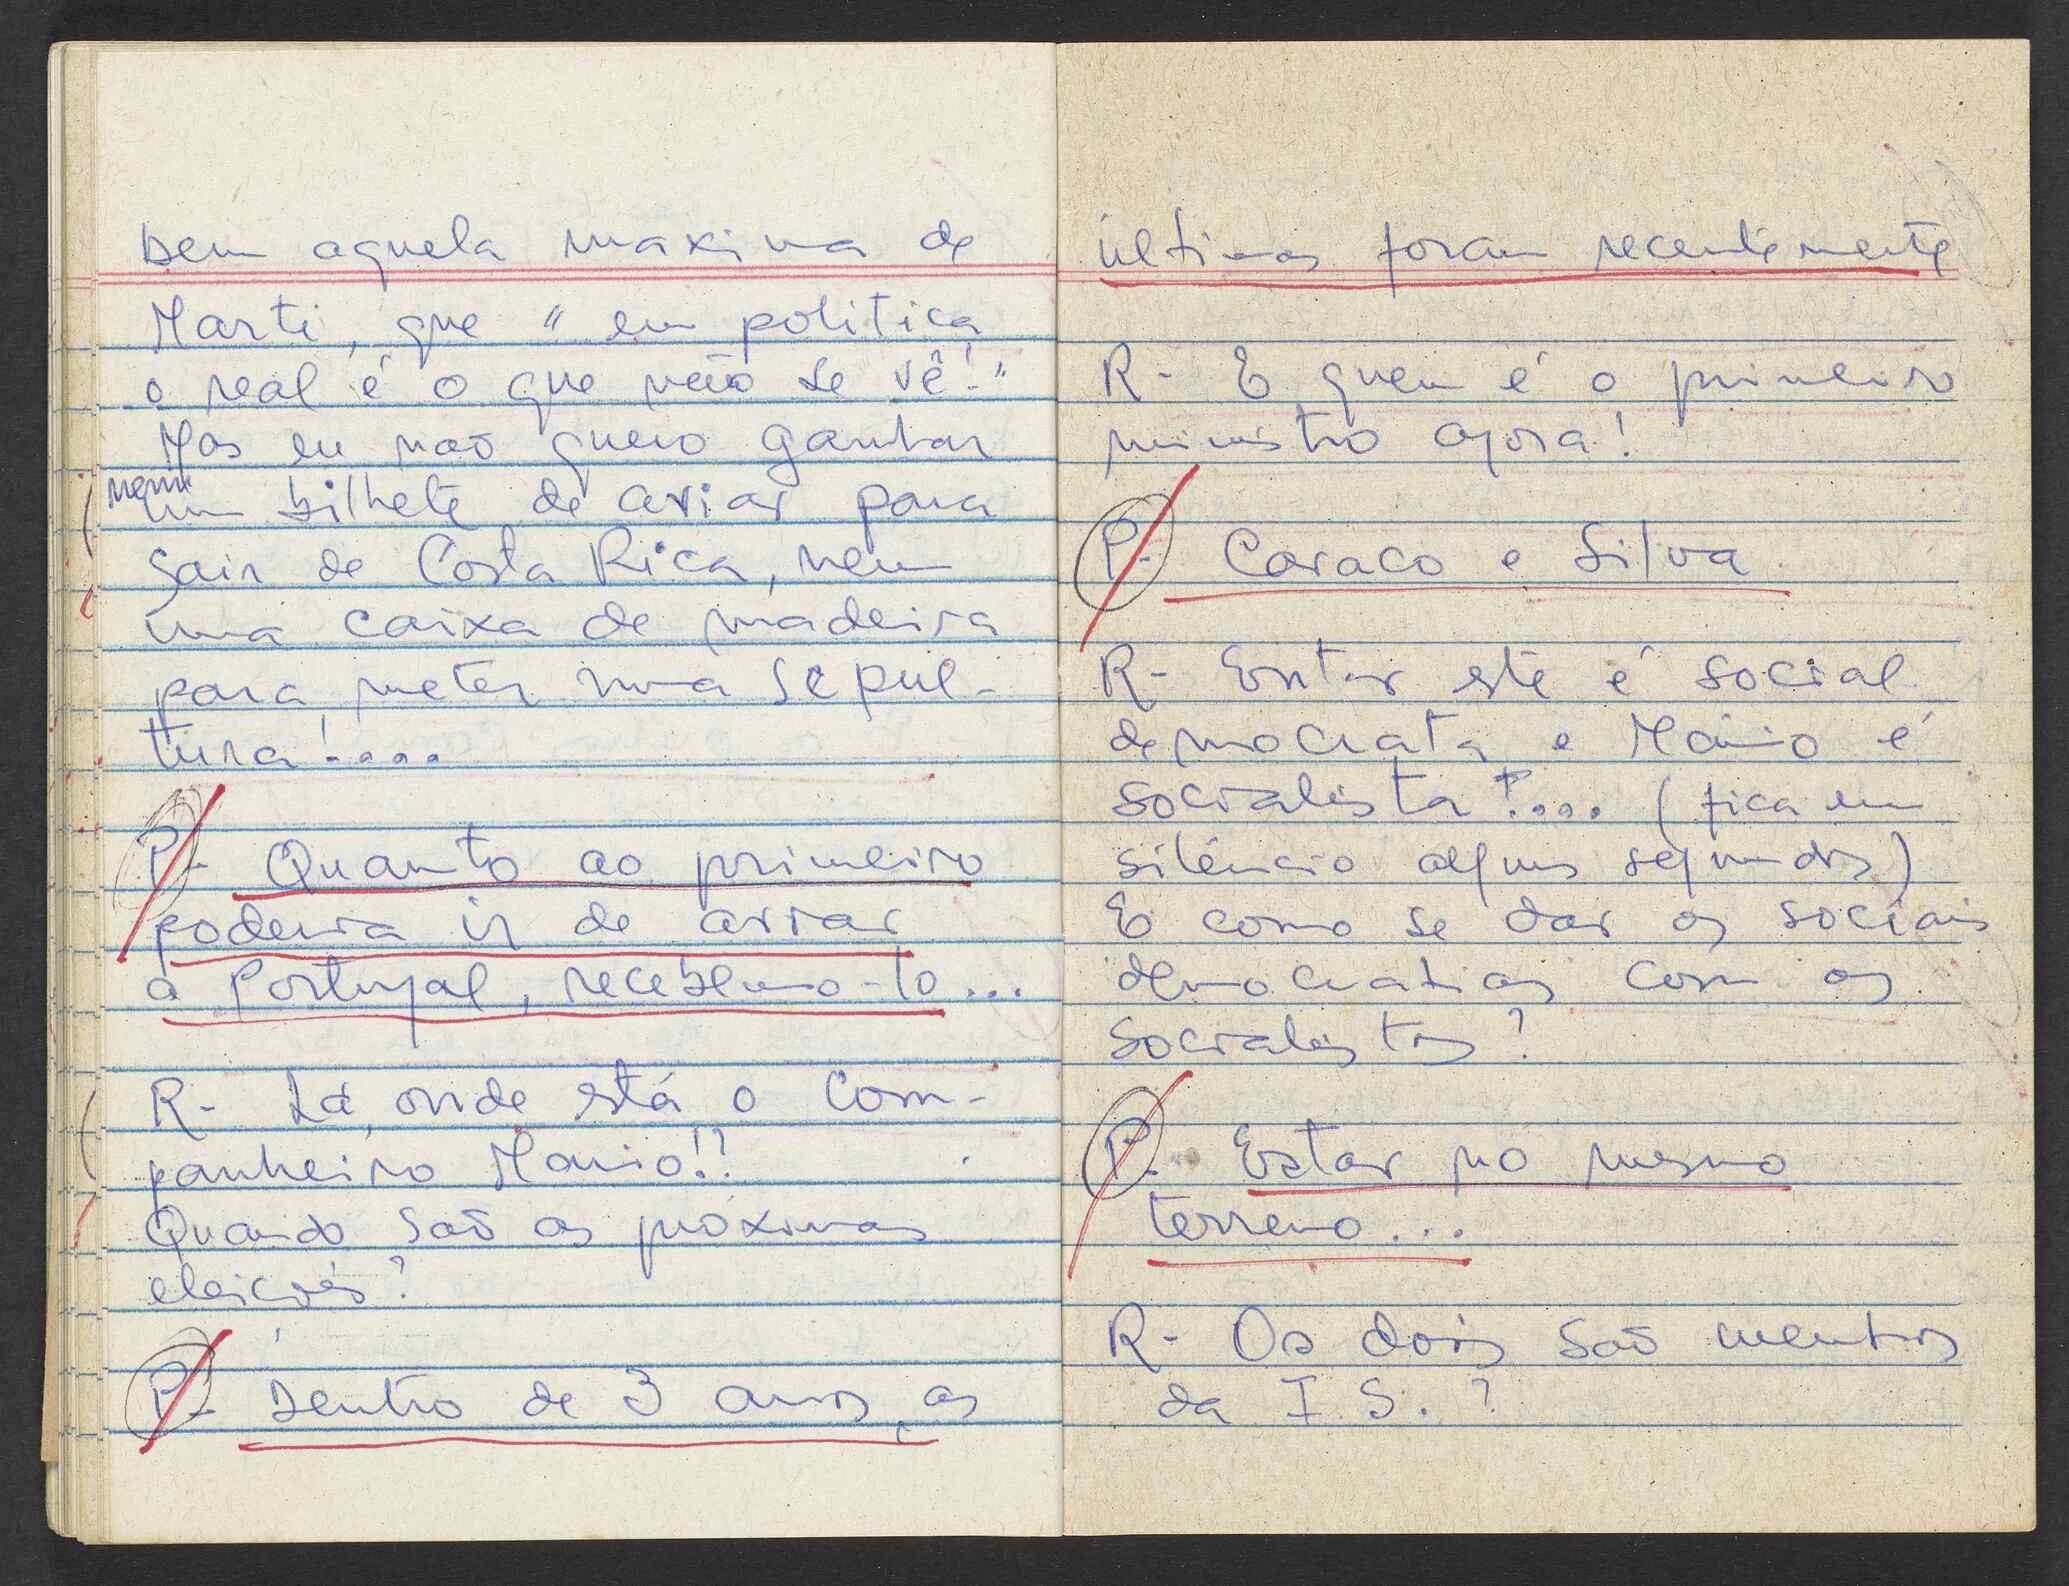 bem aquela maxima de
Marti, que "em politica
o real é o que não se vê!"
Mas eu não quero ganhar
nem um bilhete de avião para
sair de Costa Rica, nem
uma caixa de madeira
para meter numa sepul-
tura!....
P- Quanto ao primeiro
poderia ir de avião
a Portugal, recebemo-lo...
R- Lá, onde está o com-
panheiro Mario!?
Quando são as próximas
eleições?
P- Dentro de 3 anos, as
últimas foram recentemente
R- E quem é o primeiro
ministro agora!
P- Cavaco e Silva
R- Então este é social
democrata e Mário é
socialista?.... (fica em
silêncio alguns segundos)
E como se dão os sociais
democratas com os
socialistas?
P- Estão no mesmo
terreno...
R- Os dois são membros
da I S. ?